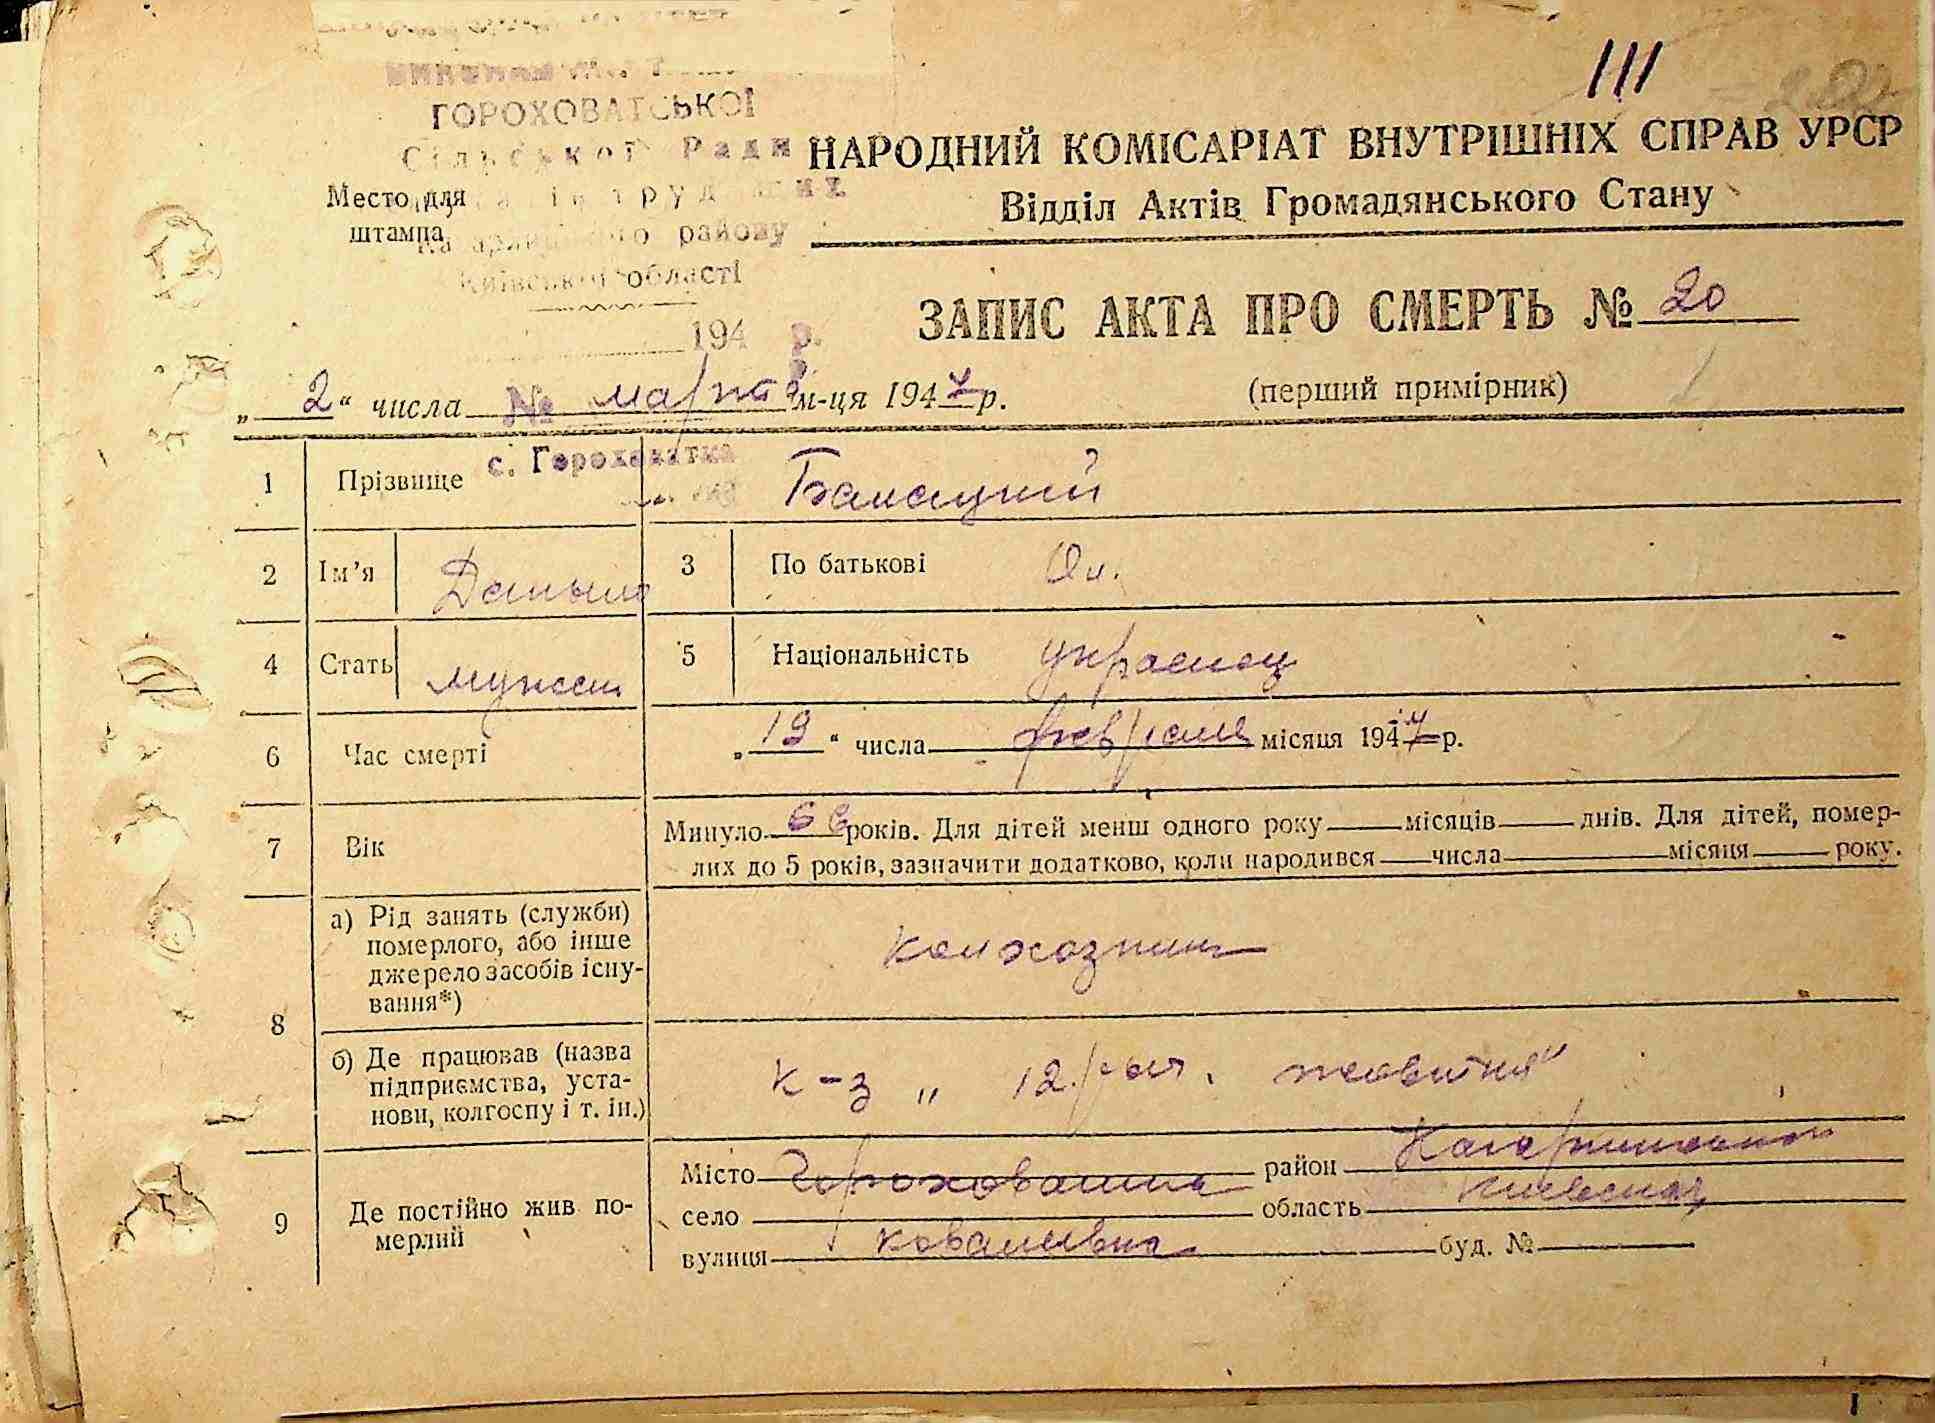 ГОРОХОВАТСЬКОЇ
Сільської Ради
районy
Київської області
194 р.
Место для
штампа
III
НАРОДНИЙ КОМІСАРІАТ ВНУТРІШНІХ СПРАВ УРСР
Відділ Актів Громадянського Стану
ЗАПИС АКТА ПРО СМЕРТЬ № 20
„2“ числа № март м-ця 1947 р.
(перший примірник)
с. Гороховатка
1 Прізвище
2 Ім’я Даныло 3 По батькові
4 Стать мужск 5 Національність украенец
6 Час смерті „19“ числа февраля місяця 1947 р.
7 Вік Минуло 66 років. Для дітей менш одного року місяців днів. Для дітей, помер-
лих до 5 років, зазначити додатково, коли народився числа місяця року.
8 а) Рід занять (служби)
померлого, або інше
джерело засобів існу-
вання*)
колхозник
б) Де працював (назва
підприємства, уста-
нови, колгоспу і т. ін.)
к-з „ 12 рыч. жовтня“
9 Де постійно жив по-
мерлий
Місто Гороховатка район Кагарлыкский
село область Киевская
вулиця Ковалевка буд. №
1